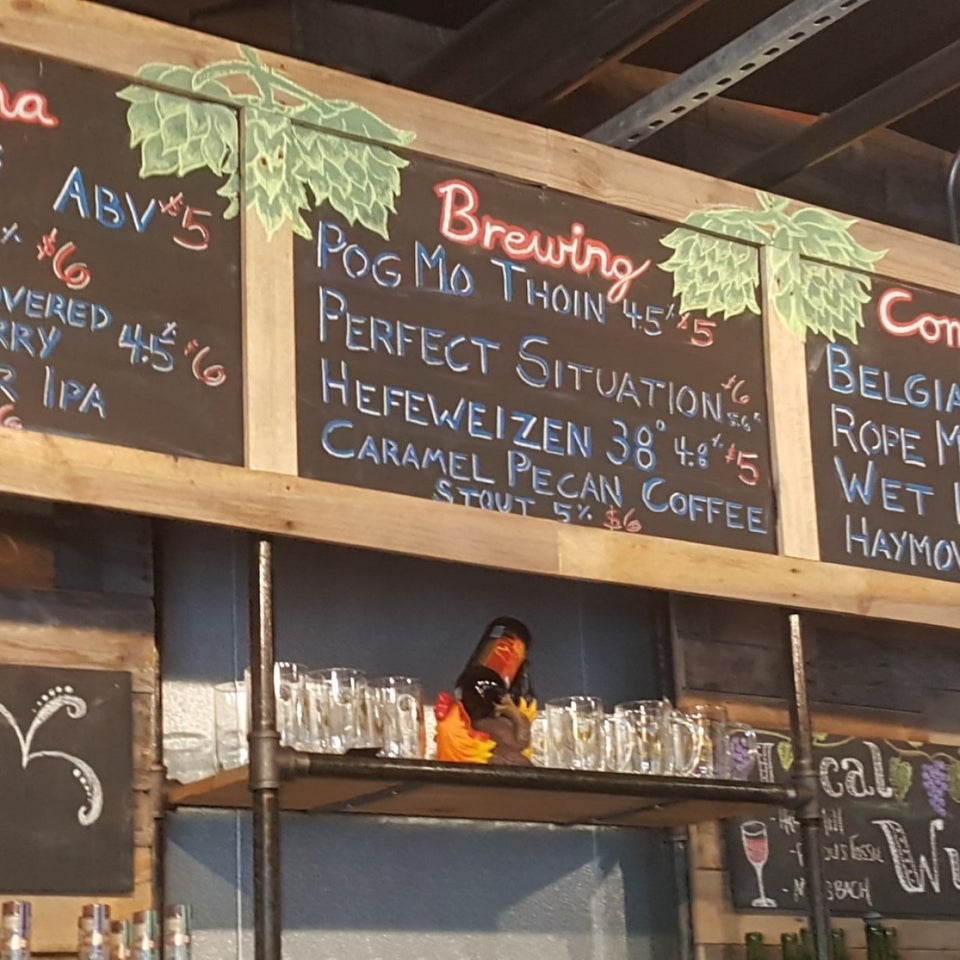 na
ABV $5
% $6
OVERED
RRY 4.5% $6
R IPA
6
Brewing
POG MO THOIN 4.5% $5
PERFECT SITUATION $6 5.6%
HEFEWEIZEN 38° 4.8% $5
CARAMEL PECAN COFFEE
STOUT 5% $6
Com
BELGIA
ROPE M
WET
HAYMOV
cal
Wi
BACH